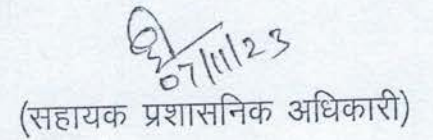 07/11/23
(सहायक प्रशासनिक अधिकारी)